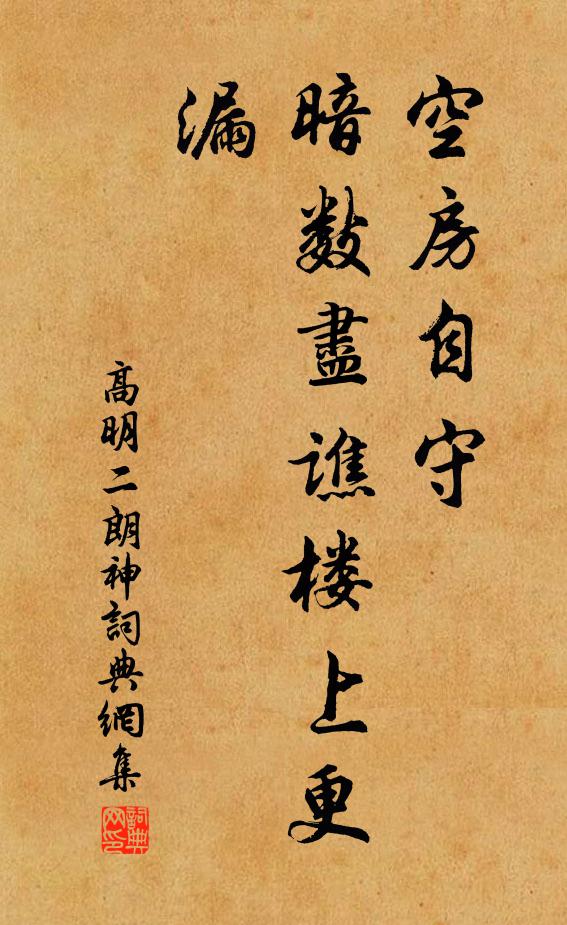 空房自守
暗数盡譙楼上更
漏
高明二朗神詞典網集
詞典网印